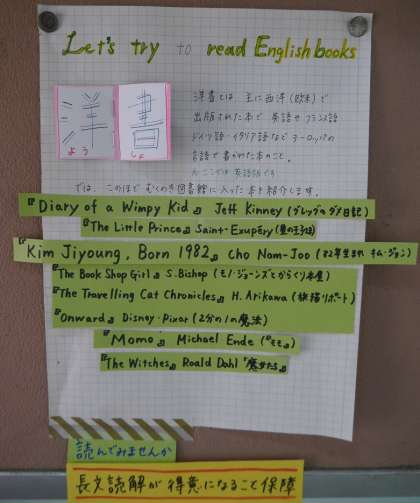 Let's try to read English books
洋書
よう しょ
洋書とは、主に西洋(欧米)で
出版された本で 英語や フランス語
ドイツ語・イタリア語など ヨーロッパの
言語で書かれた本のこと。
ここでは 英語版です
では、このほど むくのき図書館に入った本を紹介します。
『Diary of a Wimpy Kid』 Jeff Kinney (グレッグのダメ日記)
『The Little Prince』 Saint-Exupéry (星の王子様)
『Kim Jiyoung, Born 1982』 Cho Nam-Joo (82年生まれ キム・ジヨン)
『The Book Shop Girl』 S. Bishop (モノ・ジョーンズとからくり本屋)
『The Travelling Cat Chronicles』 H. Arikawa (旅猫リポート)
『Onward』 Disney・Pixar (2分の1の魔法)
『Momo』 Michael Ende (『モモ』)
『The Witches』 Roald Dahl 『魔女たち』
読んでみませんか
長文読解が得意になること保障